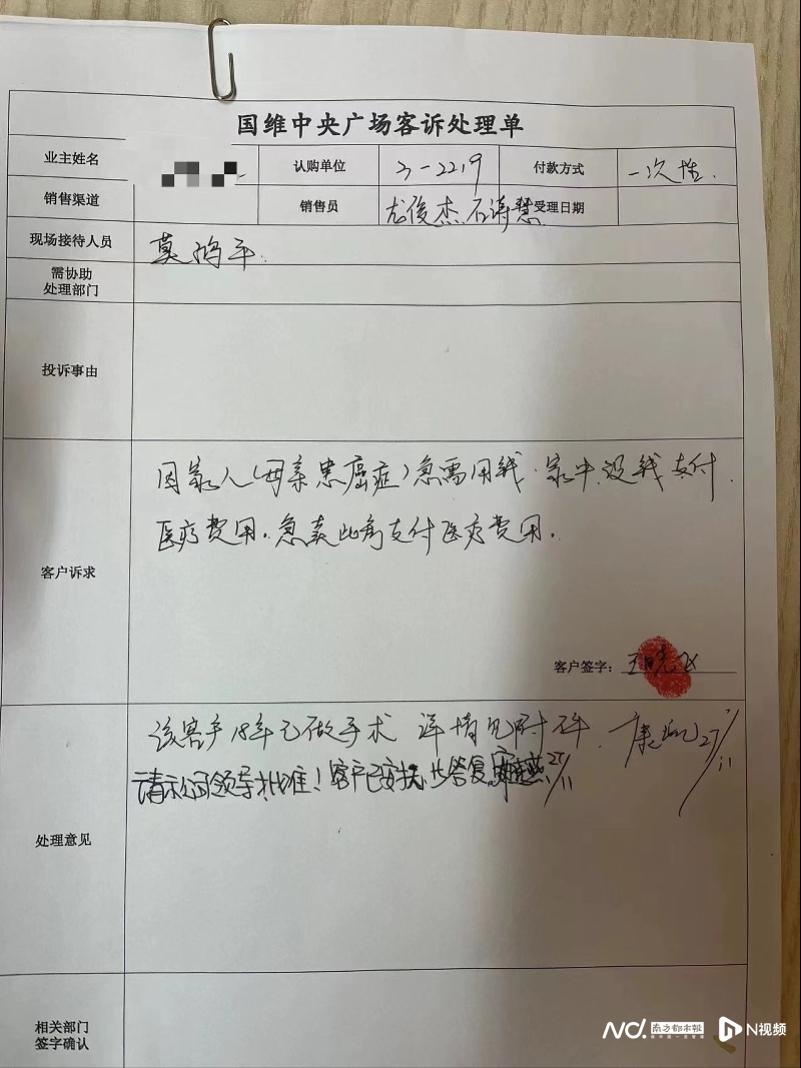 国维中央广场客诉处理单
业主姓名 认购单位 3-2219 付款方式 一次性.
销售渠道 销售员 尤俊杰 石诗慧 受理日期
现场接待人员 莫
需协助
处理部门
投诉事由
因家人(母亲患癌症)急需用钱.家中没钱支付
医疗费用.急卖此房支付医疗费用.
客户诉求
客户签字: 王晓飞
该客户18年已做手术 详情见附件. 康 27/11
请示公司领导批准!客户已安抚 答复 27/11
处理意见
相关部门
签字确认
南方都市报 N视频